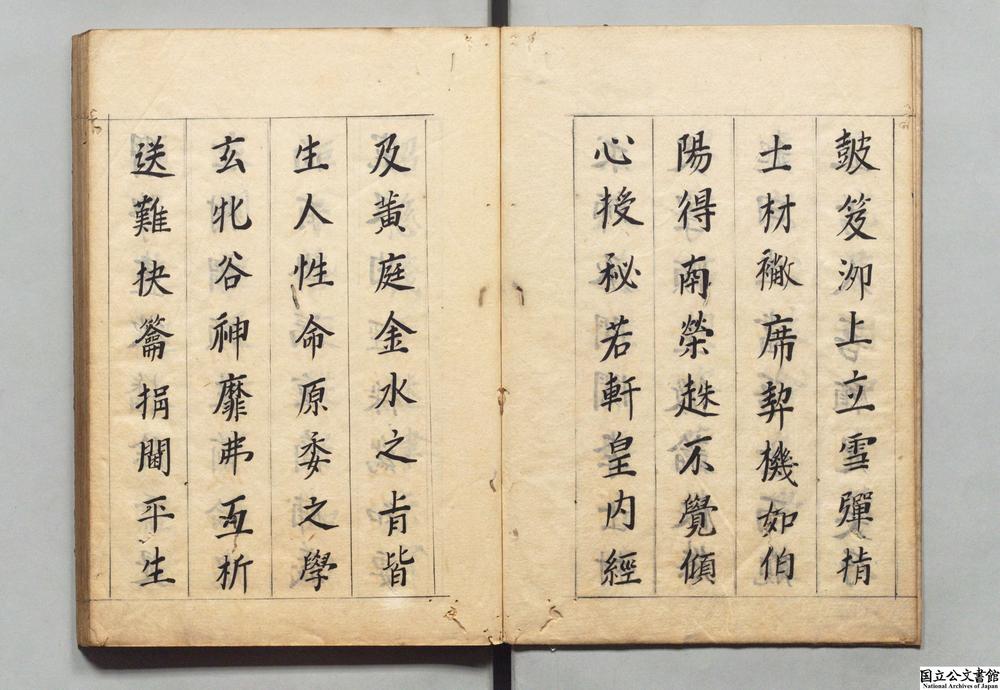 鼓笈泖上立雪彈指
士材襒席契機如伯
陽得南榮趎不覺傾
心授秘若軒皇内經
及黃庭金水之旨皆
生人性命原委之學
玄牝谷神靡弗互析
送難抉籥捐閫平生
国立公文書館
National Archives of Japan